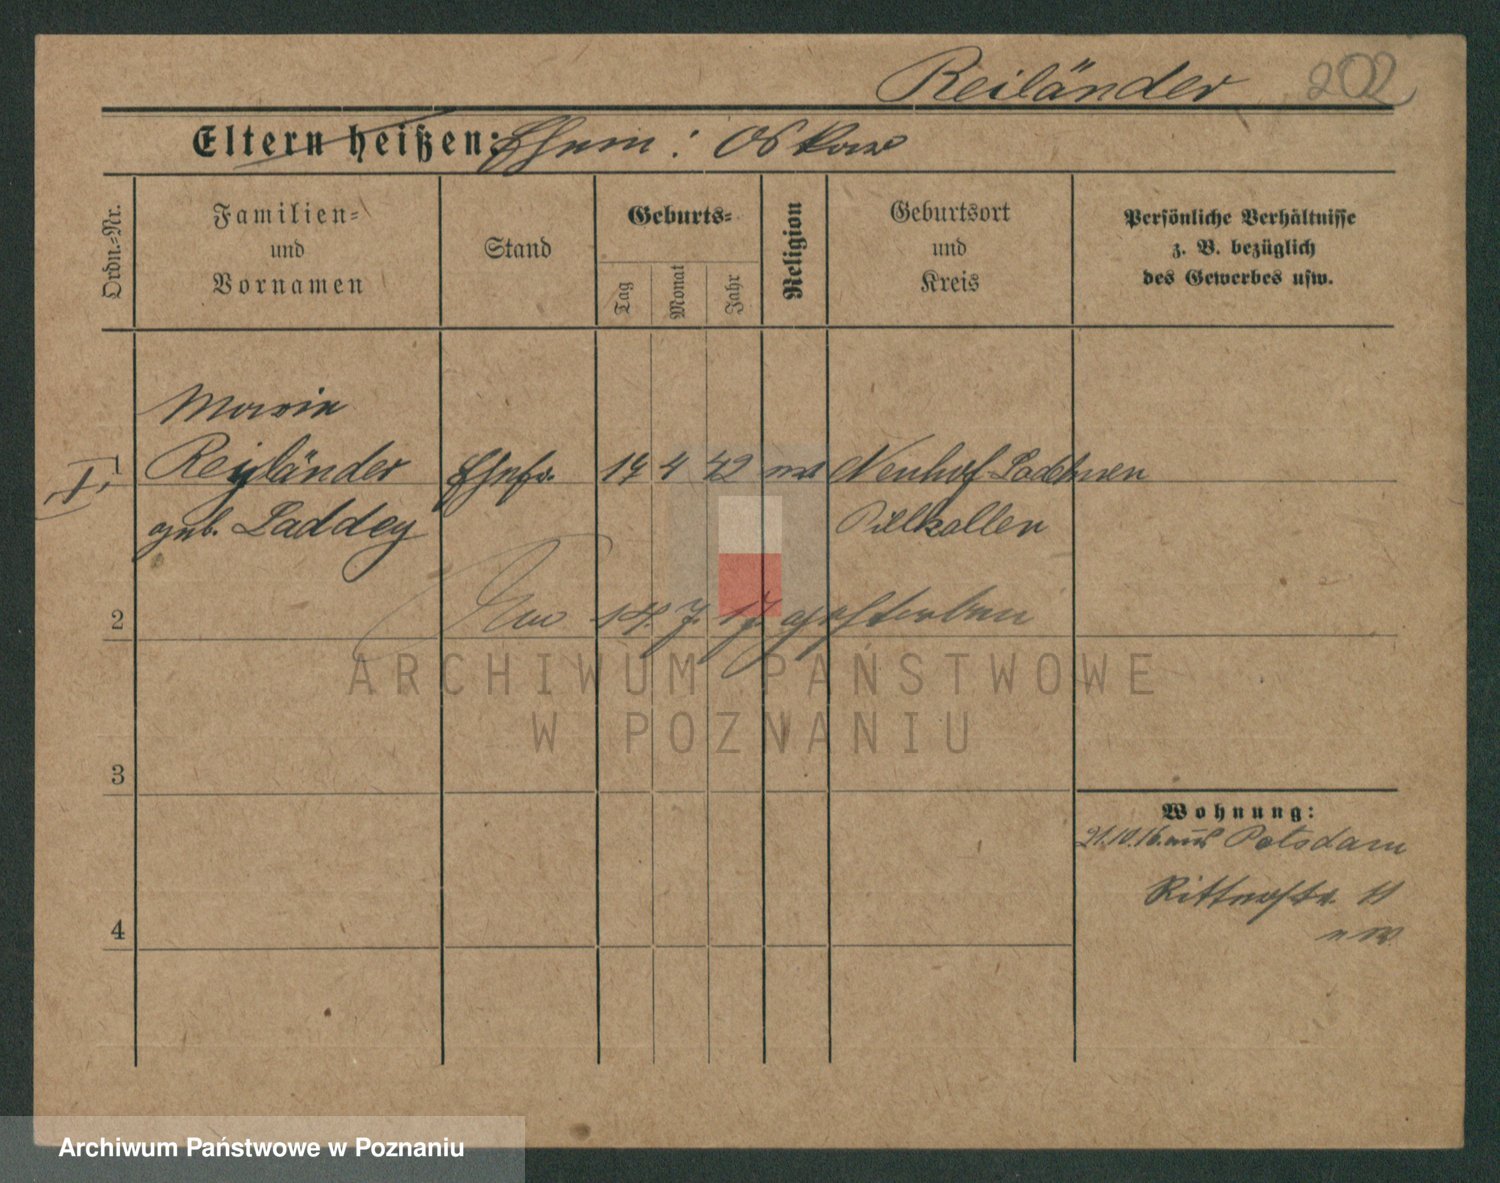 Reiländer 202
Eltern heißen: Ehem: Oskar
Ordn.-Nr.
Familien-
und
Vornamen
Stand
Geburts-
Tag
Monat
Jahr
Religion
Geburtsort
und
Kreis
Persönliche Verhältnisse
z. B. bezüglich
des Gewerbes usw.
Marie
I. 1 Reyländer Ehefr. 14 4 42 Neuhof-Lad
geb. Laddey Pillkallen
2 14. 7. 17. gestorben
ARCHIWUM PAŃSTWOWE
W POZNANIU
3
Wohnung:
21.10.16. aus Potsdam
Ritterstr. 11
4
Archiwum Państwowe w Poznaniu